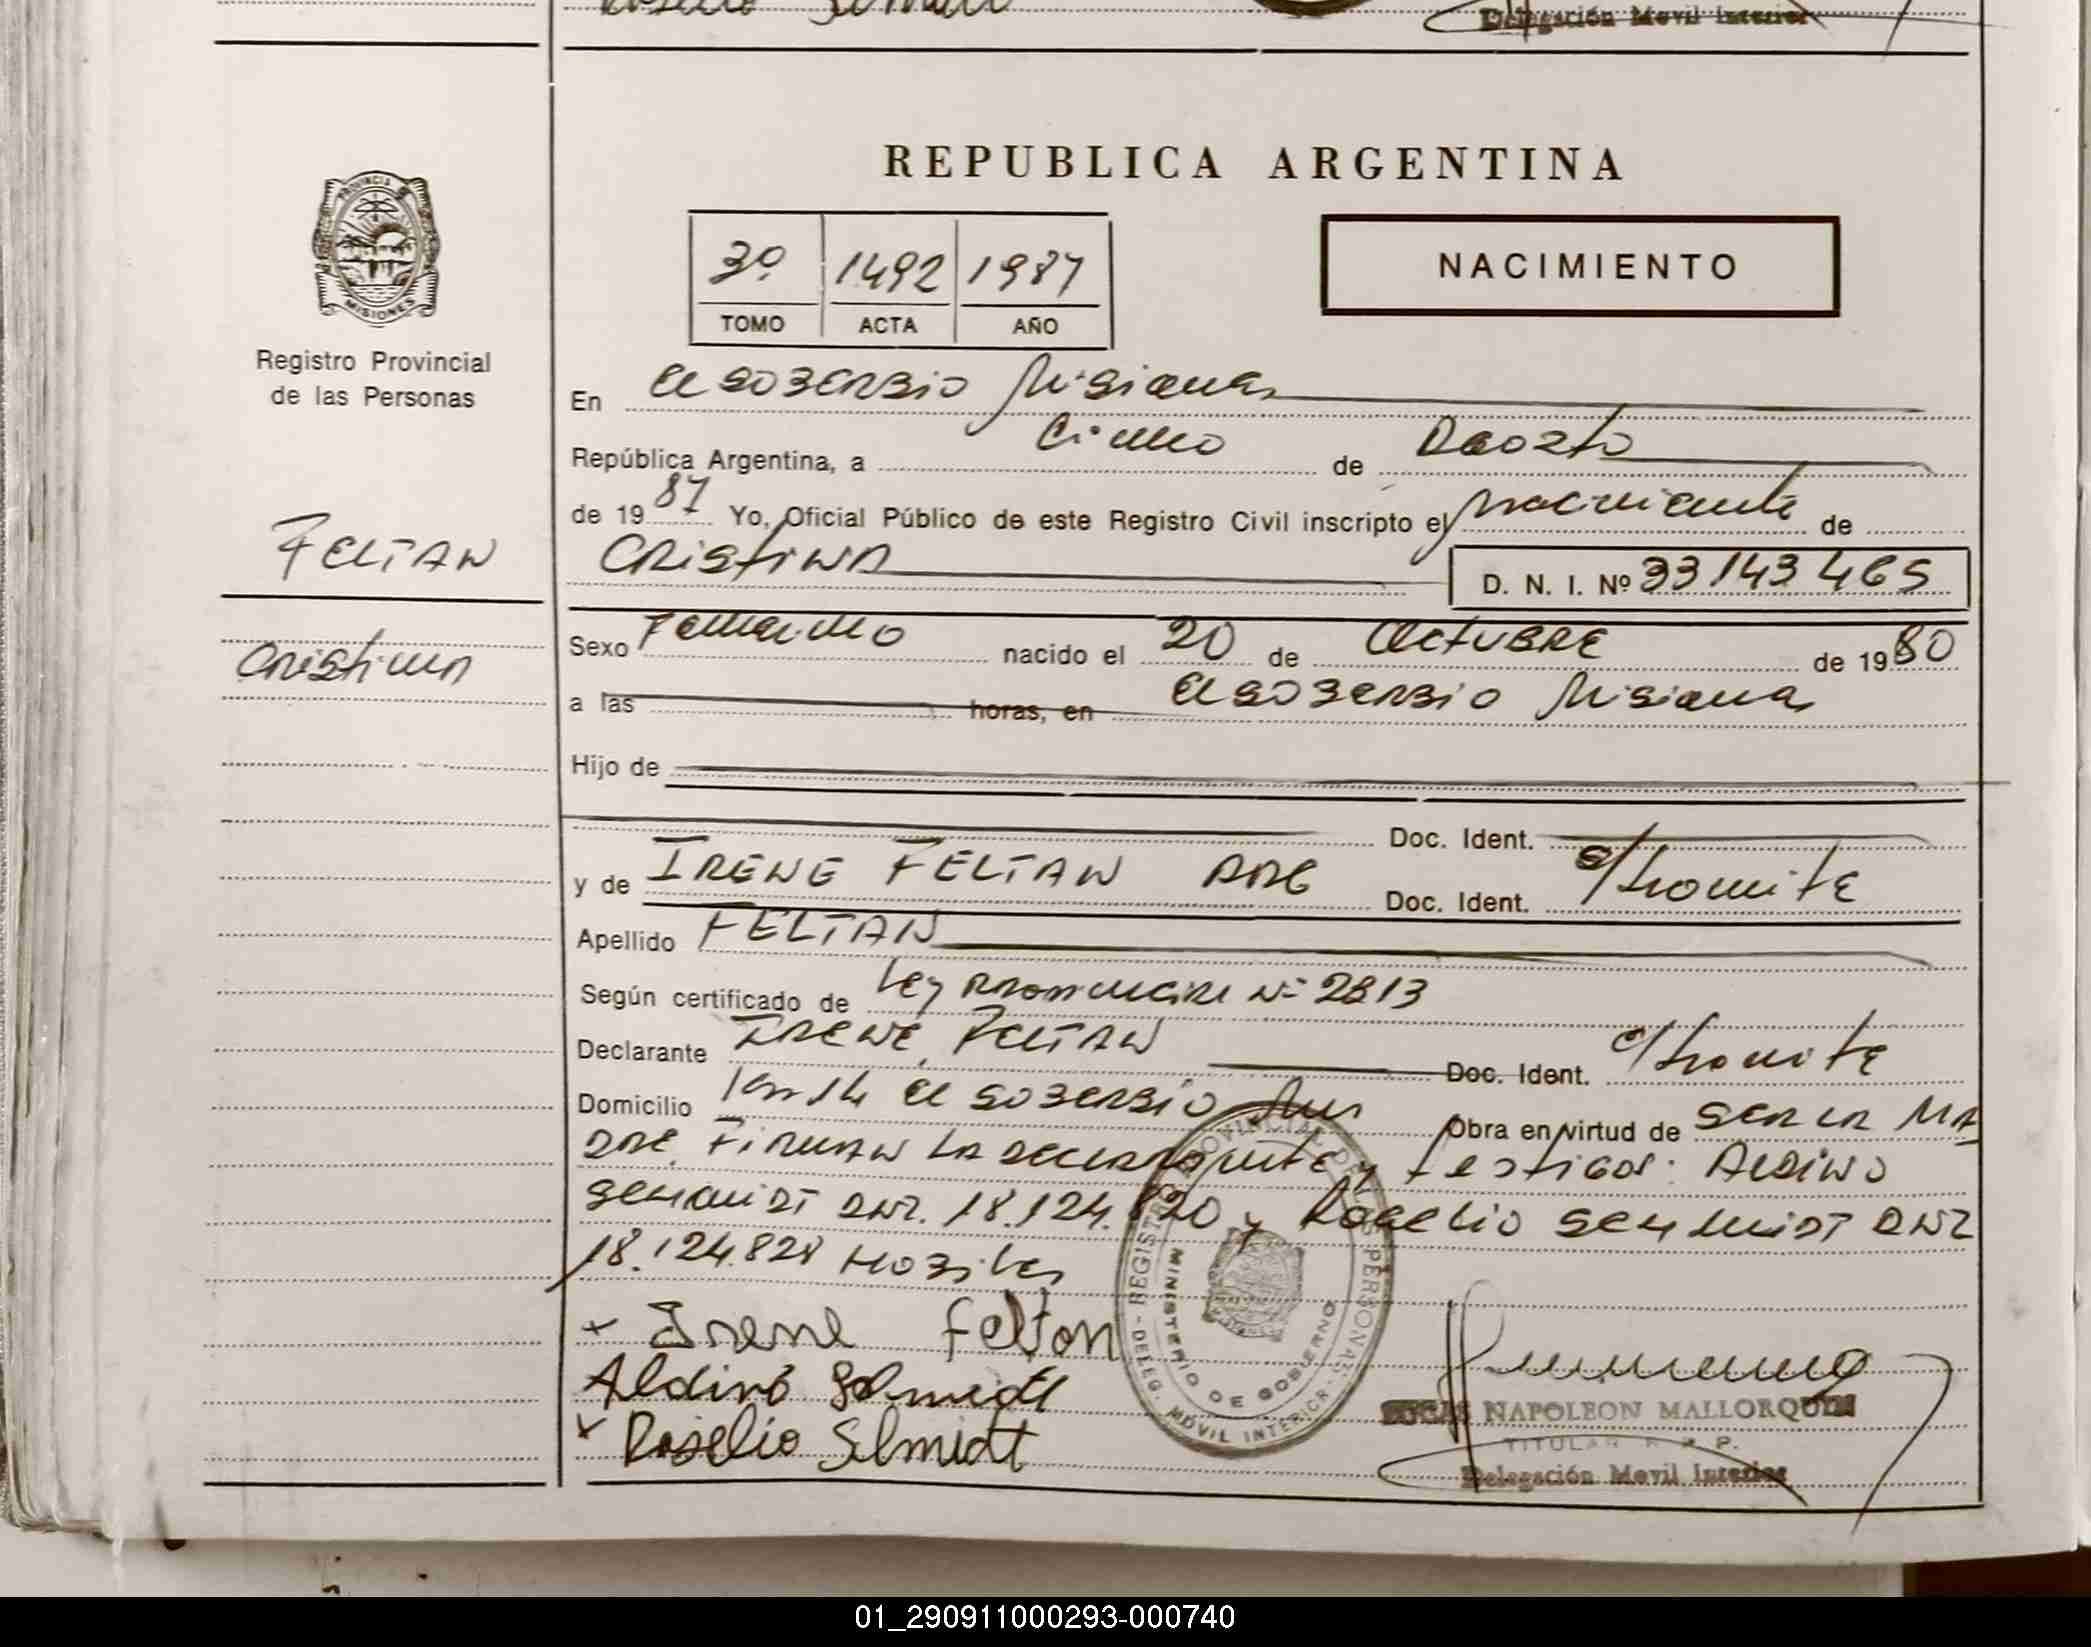 Delegación Movil Interior
REPUBLICA ARGENTINA
PROVINCIA DE
MISIONES
3º 1492 1987
TOMO ACTA AÑO
NACIMIENTO
Registro Provincial
de las Personas
En El Soberbio Misiones
República Argentina, a Cinco de Agosto
de 1987 Yo, Oficial Público de este Registro Civil inscripto el nacimiento de
FELTAN
CRISTINA D. N. I. Nº 33143465
Cristina
Sexo Femenino nacido el 20 de OCTUBRE de 1980
a las horas, en El SOBERBIO Misiones
Hijo de
Doc. Ident.
y de IRENE FELTAN ARG Doc. Ident. e/tramite
Apellido FELTAN
Según certificado de Ley PROVINCIAL Nº 2813
Declarante IRENE FELTAN Doc. Ident. e/tramite
Domicilio Km 14 El SOBERBIO Mnes Obra en virtud de SER LA MA
DRE. FIRMAN LA DECLARANTE y testigos: ALDINO
SCHMIDT DNI. 18.124.820 y ROGELIO SCHMIDT DNI
18.124.828 HABILES
x Irene Felton
Aldino Schmidt
x Roselio Schmidt
REGISTRO PROVINCIAL DE LAS PERSONAS
MINISTERIO DE GOBIERNO
DELEG. MOVIL INTERIOR
LUCAS NAPOLEON MALLORQUIN
TITULAR R. P. P.
Delegación Movil Interior
01_290911000293-000740